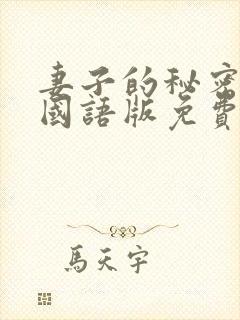 妻子的秘密
國語版免費
馬天宇